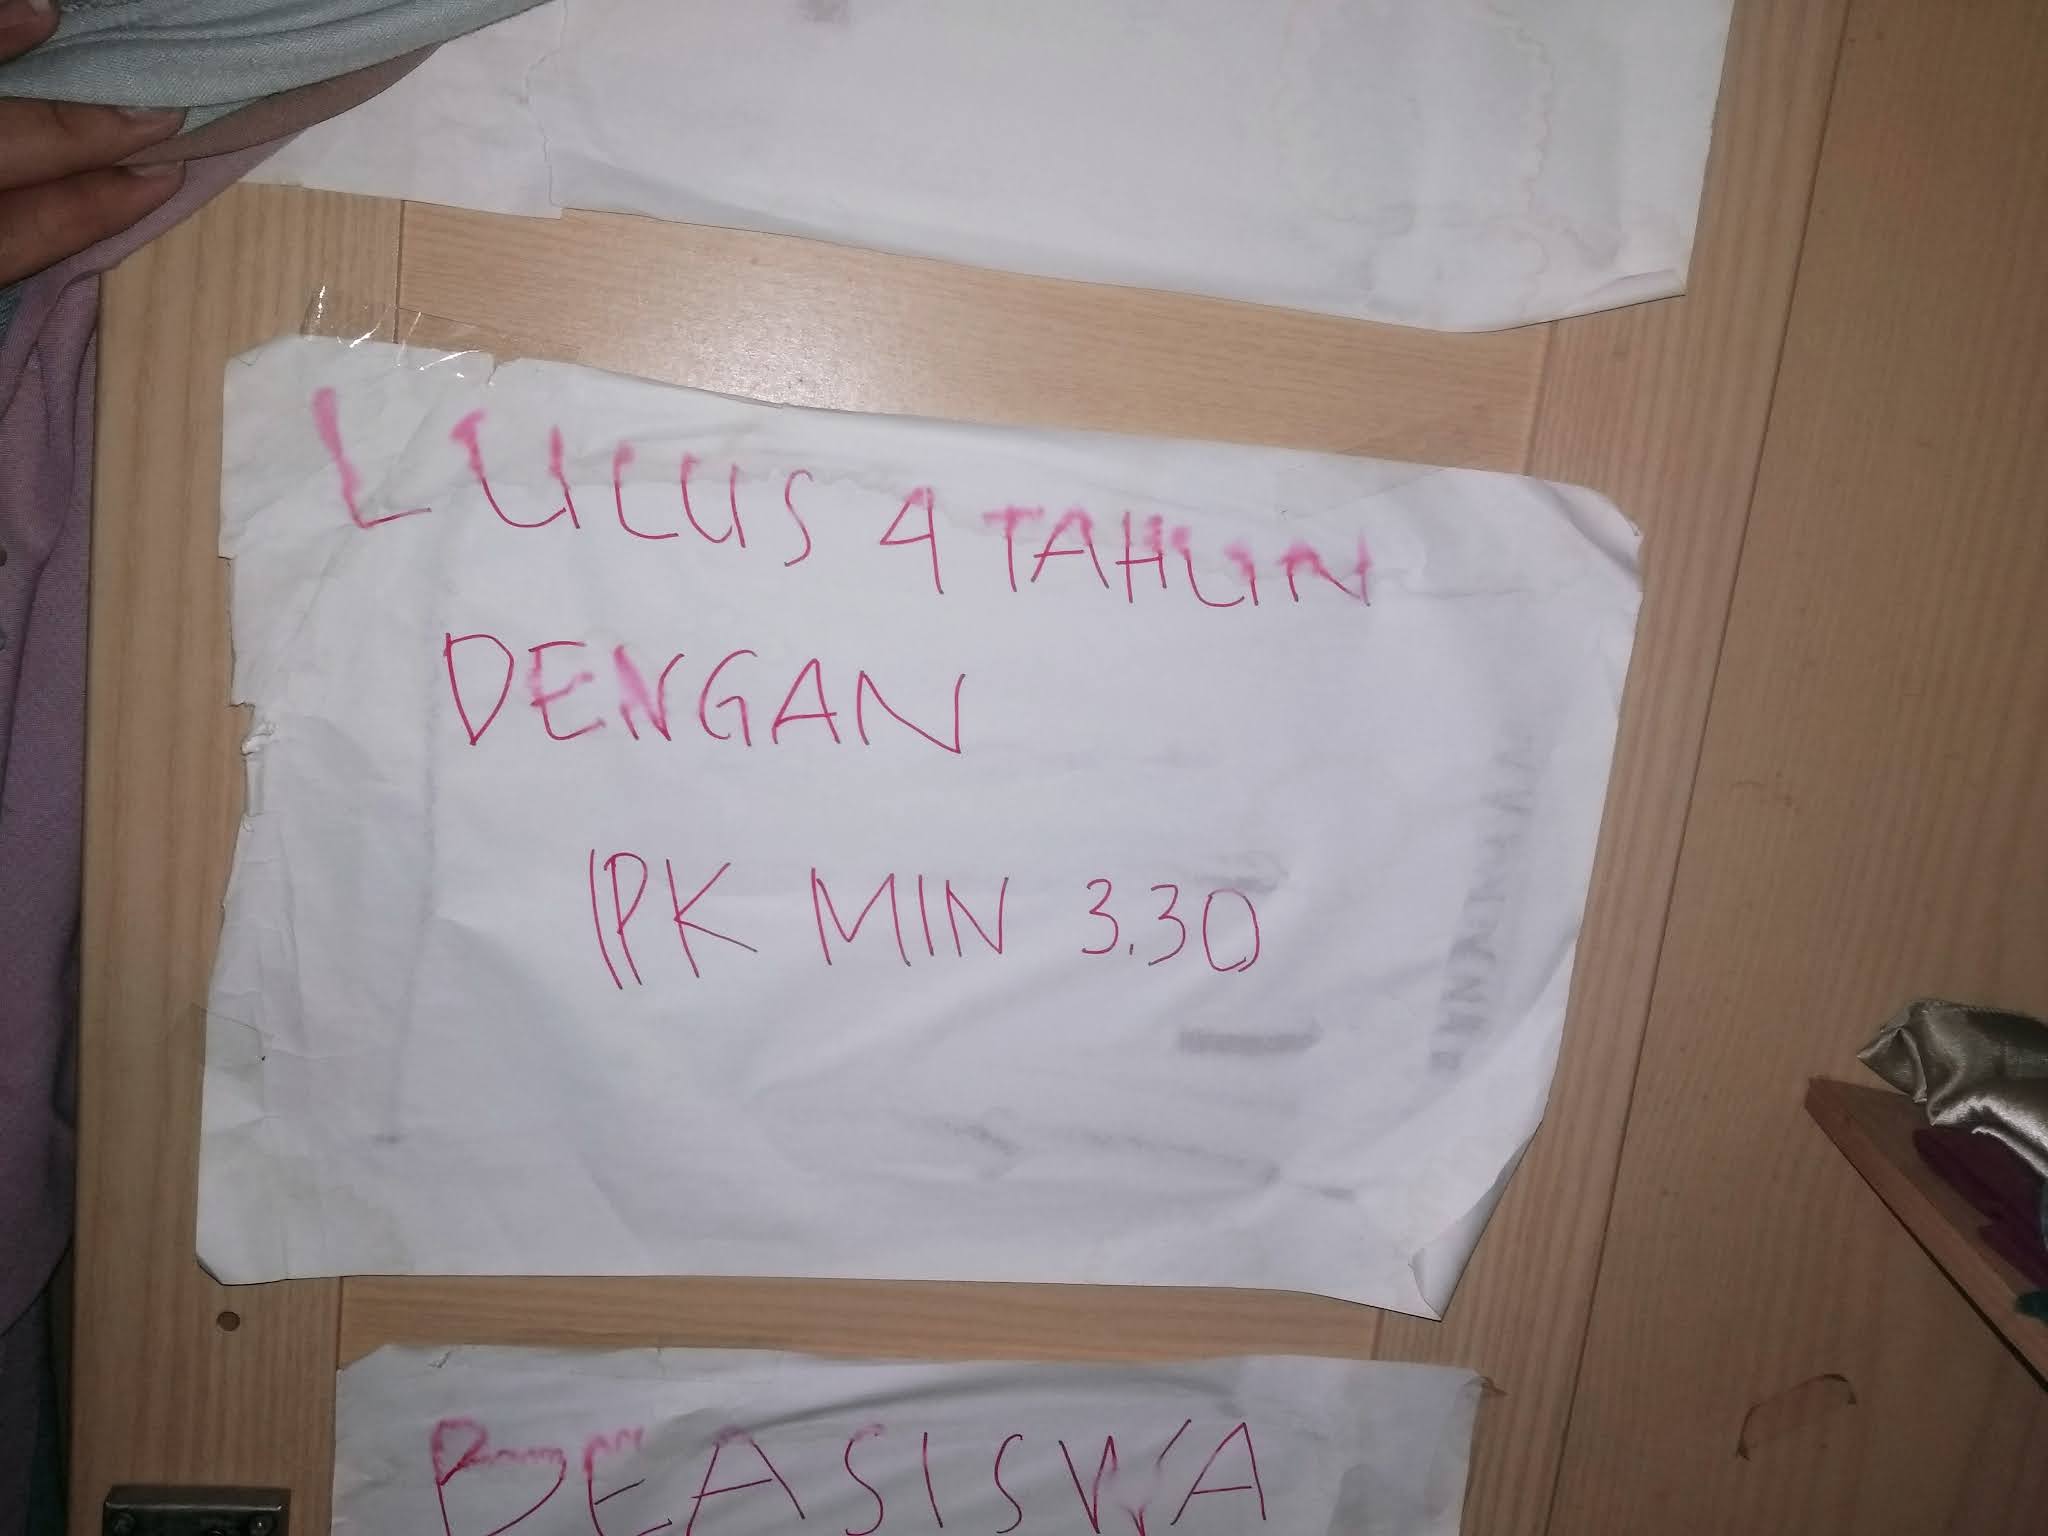 LULUS 4 TAHUN
DENGAN
IPK MIN 3.30
BEASISWA